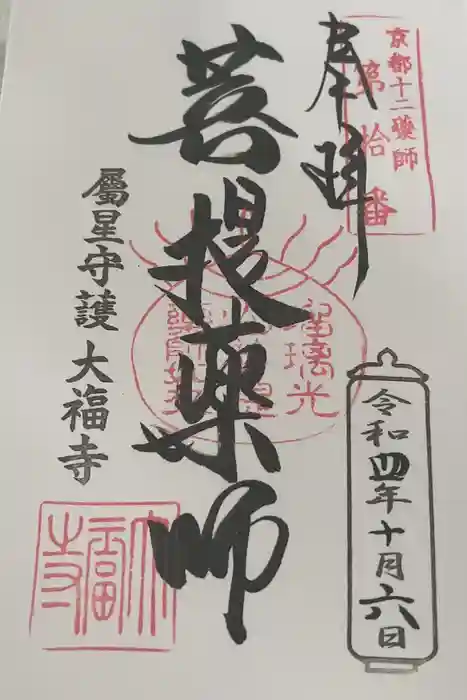 京都十二薬師
第拾番
奉拝
菩提薬師
瑠璃光
屬星守護 大福寺
大福寺
令和四年十月六日